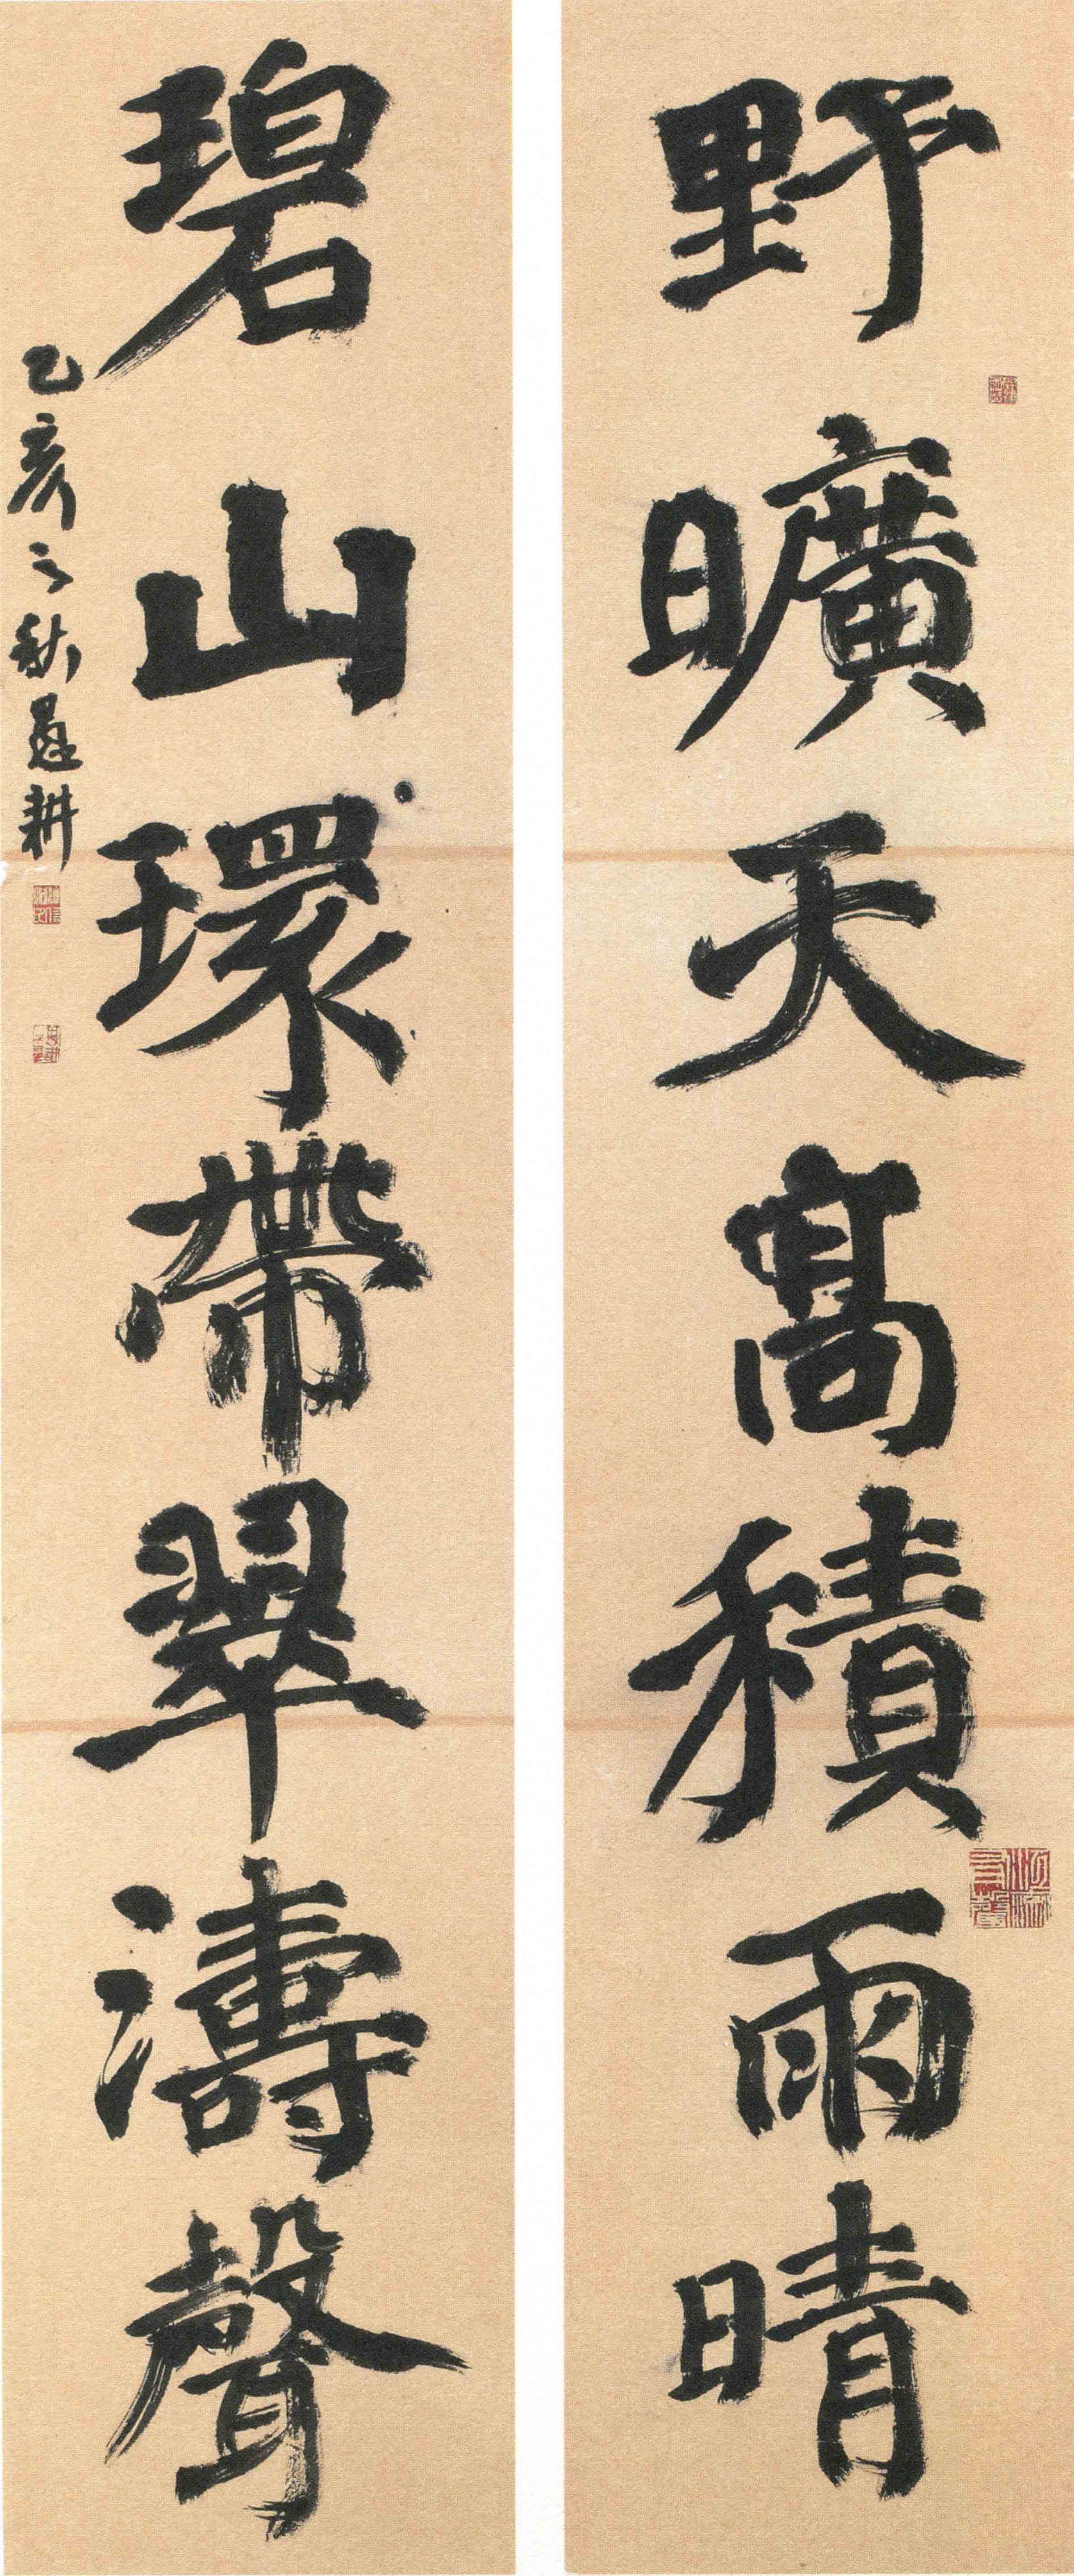 野曠天高積雨晴
碧山環帶翠濤聲
乙亥之秋愚耕